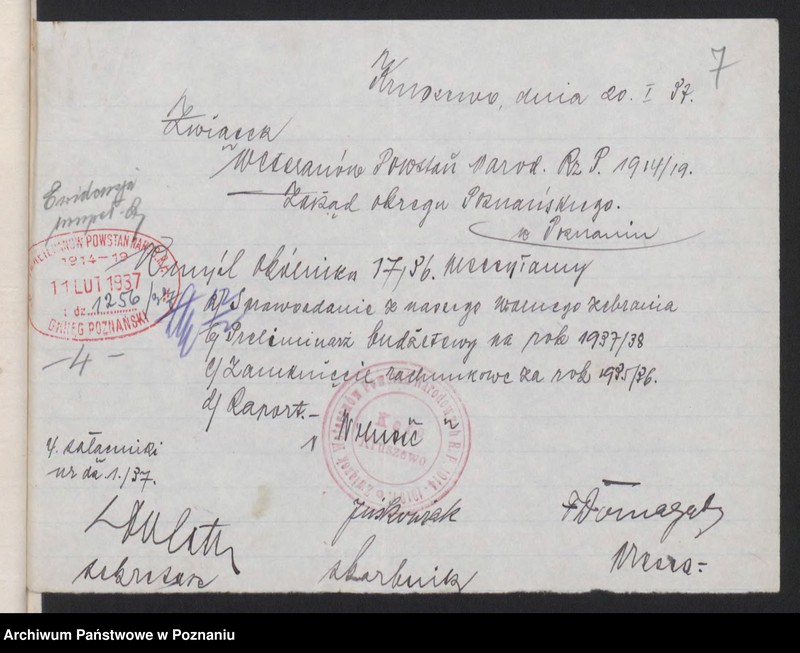 7
Kruszewo, dnia 20. I 37.
Związek
Weteranów Powstań Narod. Rz P. 1914/19.
Zarząd Okręgu Poznańskiego.
w Poznaniu
WETERANÓW POWSTAŃ NAROD. R.P.
1914-19
11 LUT 1937
L. dz. 1256/37
OKRĘG POZNAŃSKI
W myśl Okólnika 17/36. wysyłamy
a/ Sprawozdanie z naszego walnego zebrania
b/ Preliminarz budżetowy na rok 1937/38
c/ Zamknięcie rachunkowe za rok 1935/36.
d/ Raport.-
- 4 -
"Wolność"
Koło
Kruszewo
4. załączniki
nr dz 1./37.
Juśkowiak
F Domagała
sekretarz
skarbnik
Prezes-
Archiwum Państwowe w Poznaniu